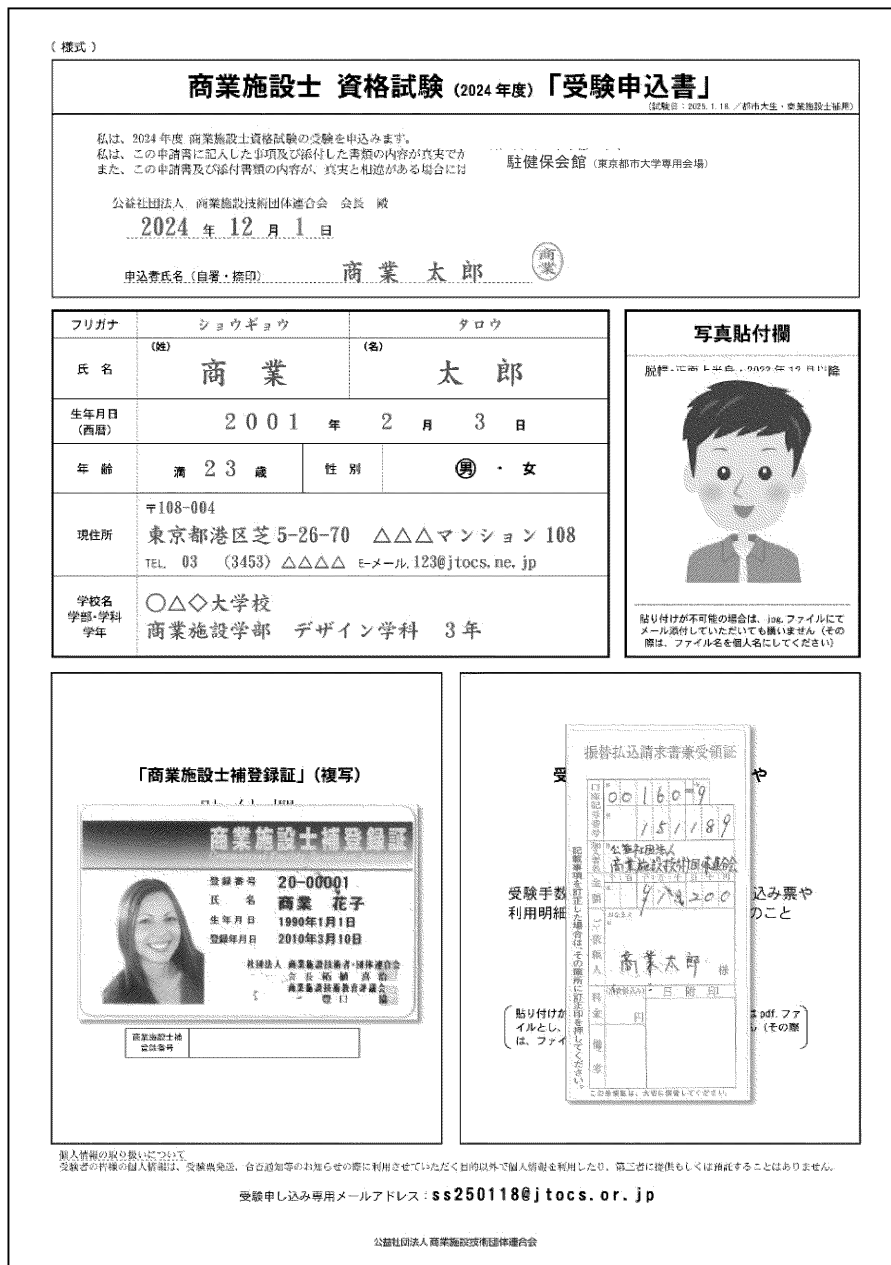 （ 様式 ）
商業施設士 資格試験（2024 年度）「受験申込書」
（試験日：2025.1.18. ／都市大生・商業施設士補用）
私は、2024 年度 商業施設士資格試験の受験を申込みます。
私は、この申請書に記入した事項及び添付した書類の内容が真実でか
また、この申請書及び添付書類の内容が、真実と相違がある場合には
駐健保会館（東京都市大学専用会場）
公益社団法人 商業施設技術団体連合会 会長 殿
2024 年 12 月 1 日
申込者氏名（自署・捺印） 商 業 太 郎
商業
フリガナ ショウギョウ タロウ
氏 名 （姓） 商 業 （名） 太 郎
生年月日（西暦） 2001 年 2 月 3 日
年 齢 満 23 歳 性 別 男 ・ 女
現住所
〒108-004
東京都港区芝 5-26-70 △△△マンション 108
TEL. 03 （3453）△△△△ E-メール.123@jtocs.ne.jp
学校名
学部・学科
学年
○△◇大学校
商業施設学部 デザイン学科 3年
写真貼付欄
脱帽・正面上半身・
貼り付けが不可能の場合は、jpg.ファイルにて
メール添付していただいても構いません（その
際は、ファイル名を個人名にしてください）
「商業施設士補登録証」（複写）
商業施設士補登録証
登録番号 20-00001
氏 名 商業 花子
生年月日 1990年1月1日
登録年月日 2010年3月10日
社団法人 商業施設技術者・団体連合会
商業施設技術教育評議会
商業施設士補
登録番号
受
や
振替払込請求書兼受領証
口座記号番号
00160-9
151189
加入者名
公益社団法人
商業施設技術団体連合会
金額
200
ご依頼人
商業太郎 様
料金
円
日附印
備考
記載事項を訂正した場合は、その箇所に訂正印を押してください。
この受領証は、大切に保管してください。
受験手数
込み票や
利用明細
のこと
貼り付けが
は pdf. ファ
イルとし、
（その際
は、ファイ
個人情報の取り扱いについて
受験者の皆様の個人情報は、受験票発送、合否通知等のお知らせの際に利用させていただく目的以外で個人情報を利用したり、第三者に提供もしくは預託することはありません。
受験申し込み専用メールアドレス：ss250118@jtocs.or.jp
公益社団法人 商業施設技術団体連合会